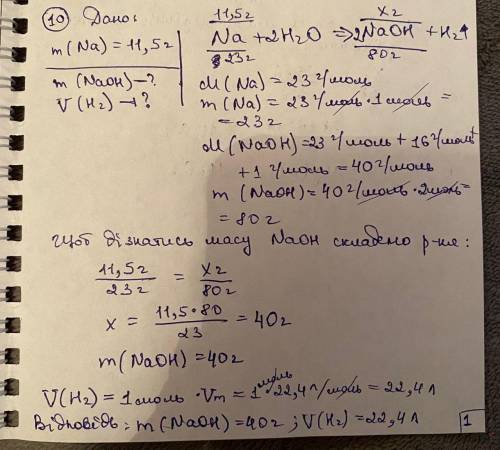 10 Дано:
m(Na) = 11,5г
m(NaOH) - ?
V(H₂) - ?
11,5г x г
Na + 2H₂O ⇒ 2NaOH + H₂↑
23г 80г
M(Na) = 23 г/моль
m(Na) = 23 г/моль · 1 моль =
= 23г
M(NaOH) = 23 г/моль + 16 г/моль +
+ 1 г/моль = 40 г/моль
m(NaOH) = 40 г/моль · 2моль =
= 80г
Щоб дізнатись масу NaOH складемо р-не:
11,5г / 23г = xг / 80г
x = 11,5·80 / 23 = 40г
m(NaOH) = 40г
V(H₂) = 1 моль · Vm = 1 моль · 22,4 л/моль = 22,4 л
Відповідь: m(NaOH) = 40г ; V(H₂) = 22,4 л
1